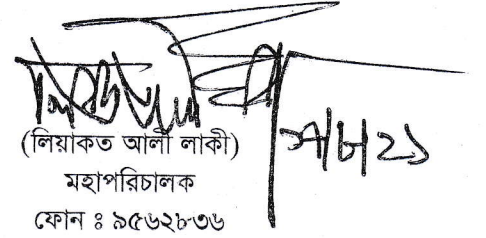 (লিয়াকত আলী লাকী)
মহাপরিচালক
ফোন ঃ ৯৫৬২৮৩৬